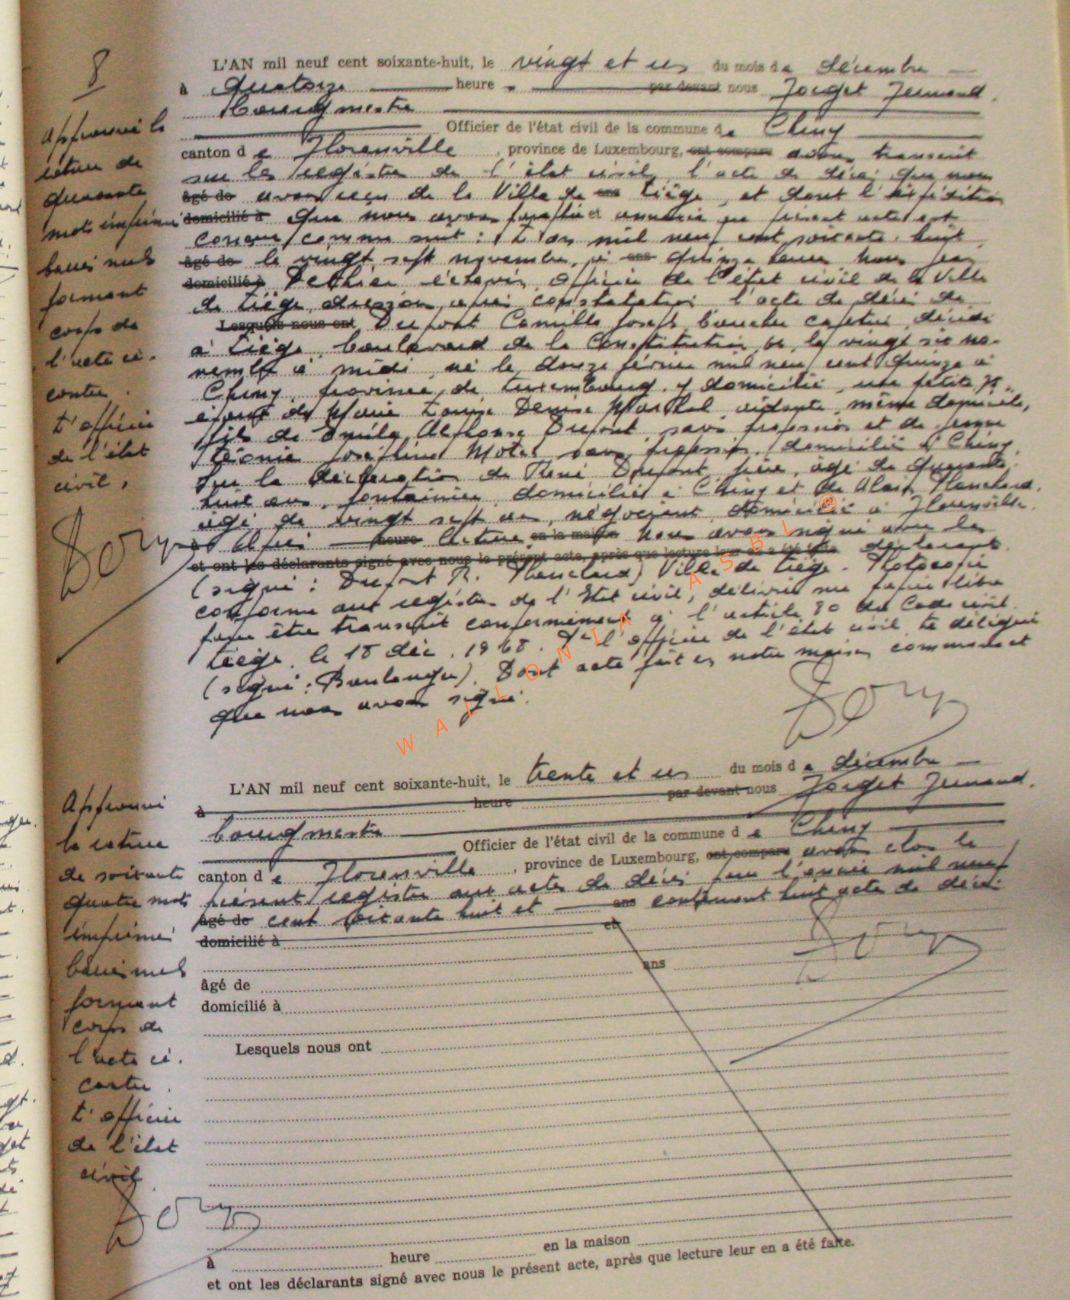 8
L'AN mil neuf cent soixante-huit, le vingt et un du mois de décembre
à quatorze heure par devant nous Forget Fernand,
bourgmestre
Officier de l'état civil de la commune de Chiny
canton de Florenville, province de Luxembourg, ont comparu avons transcrit
sur les registres de l'état civil, l'acte de décès que nous
âgé de avons reçu de la Ville de ans Liège, et dont l'expédition
domicilié à que nous avons et annexée au présent acte est
conçue comme suit : L'an mil neuf cent soixante-huit,
âgé de le vingt sept novembre, à ans quinze heures Nous Jean
domicilié à Dethier échevin, officier de l'état civil de la Ville
de Liège, dressons après constatation l'acte de décès de
Lesquels nous ont Dupont Camille Joseph, boucher, décédé
à Liège, boulevard de la Constitution, le vingt six no-
vembre à midi, né le douze février mil neuf cent quinze à
Chiny, province de Luxembourg, y domicilié,
époux de Marie Louise Denise Maréchal, même domicile,
fils de Emile Alphonse Dupont, sans profession et de Jeanne
Léonie Joséphine sans profession, domiciliés à Chiny,
sur la déclaration de René Dupont, frère, âgé de quarante
huit ans, fontainier, domicilié à Chiny et de Alain Planchard,
âgé de vingt sept ans, négociant, domicilié à Florenville.
à Après heure lecture, en la maison Nous avons signé avec les
et ont les déclarants signé avec nous le présent acte, après que lecture leur en a été faite déclarants.
(signé : Dupont R. Planchard) Ville de Liège. Photocopie
conforme aux registres de l'Etat civil, délivrée sur papier libre
pour être transcrit conformément à l'article 80 du Code civil.
Liège, le 18 déc. 1968. Pr l'officier de l'état civil le délégué
(signé : Boulanger). Dont acte fait en notre maison communale et
que nous avons signé.
Approuvé la
rature de
quarante
mots imprimés
barrés nuls
formant
corps de
l'acte ci-
contre.
L'officier
de l'état
civil,
WALLONIA ASBL ©
L'AN mil neuf cent soixante-huit, le trente et un du mois de décembre
à heure par devant nous Forget Fernand,
bourgmestre
Officier de l'état civil de la commune de Chiny
canton de Florenville, province de Luxembourg, ont comparu avons clos le
présent registre aux actes de décès pour l'année mil neuf
âgé de cent soixante huit et ans contenant huit actes de décès
domicilié à et
ans
âgé de
domicilié à
Lesquels nous ont
à heure en la maison
et ont les déclarants signé avec nous le présent acte, après que lecture leur en a été faite.
Approuvé
la rature
de soixante
quatre mots
imprimés
barrés nuls
formant
corps de
l'acte ci-
contre.
L'officier
de l'état
civil